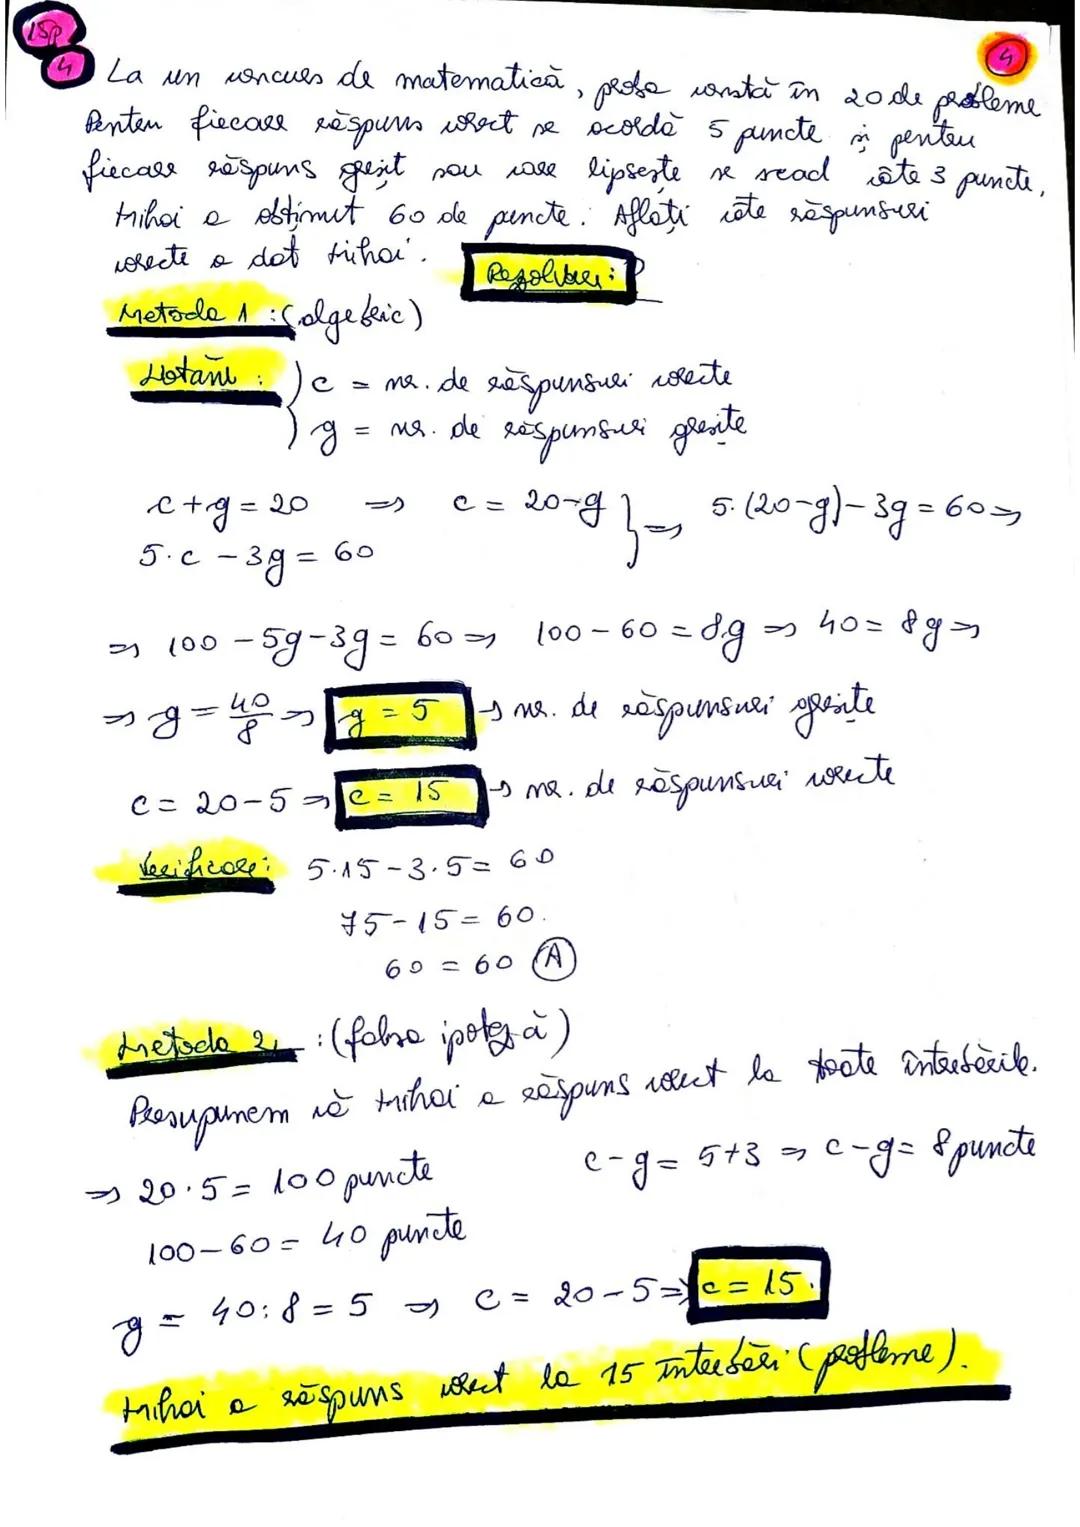 15p
4
4
La un concurs de matematică, proba constă în 20 de probleme
Pentru fiecare răspuns corect se acordă 5 puncte și pentru
fiecare răspuns greșit sau care lipsește se scad câte 3 puncte.
Mihai a obținut 60 de puncte. Aflați câte răspunsuri
corecte a dat Mihai.
Rezolvare:
Metoda 1 : (algebric)
Notăm : c = nr. de răspunsuri corecte
g = nr. de răspunsuri greșite
c+g = 20 => c = 20-g } => 5·(20-g)-3g = 60 =>
5·c -3g = 60
=> 100 -5g-3g = 60 => 100-60 = 8g => 40 = 8g =>
=> g = 40/8 => g = 5 → nr. de răspunsuri greșite
c = 20-5 => c = 15 → nr. de răspunsuri corecte
Verificare: 5·15-3·5= 60
75-15= 60.
60 = 60 (A)
Metoda 2 : (falsa ipoteză)
Presupunem că Mihai a răspuns corect la toate întrebările.
c-g= 5+3 => c-g= 8 puncte
=> 20·5= 100 puncte
100-60= 40 puncte
g = 40:8 = 5 => c = 20-5 => c = 15.
Mihai a răspuns corect la 15 întrebări (probleme).